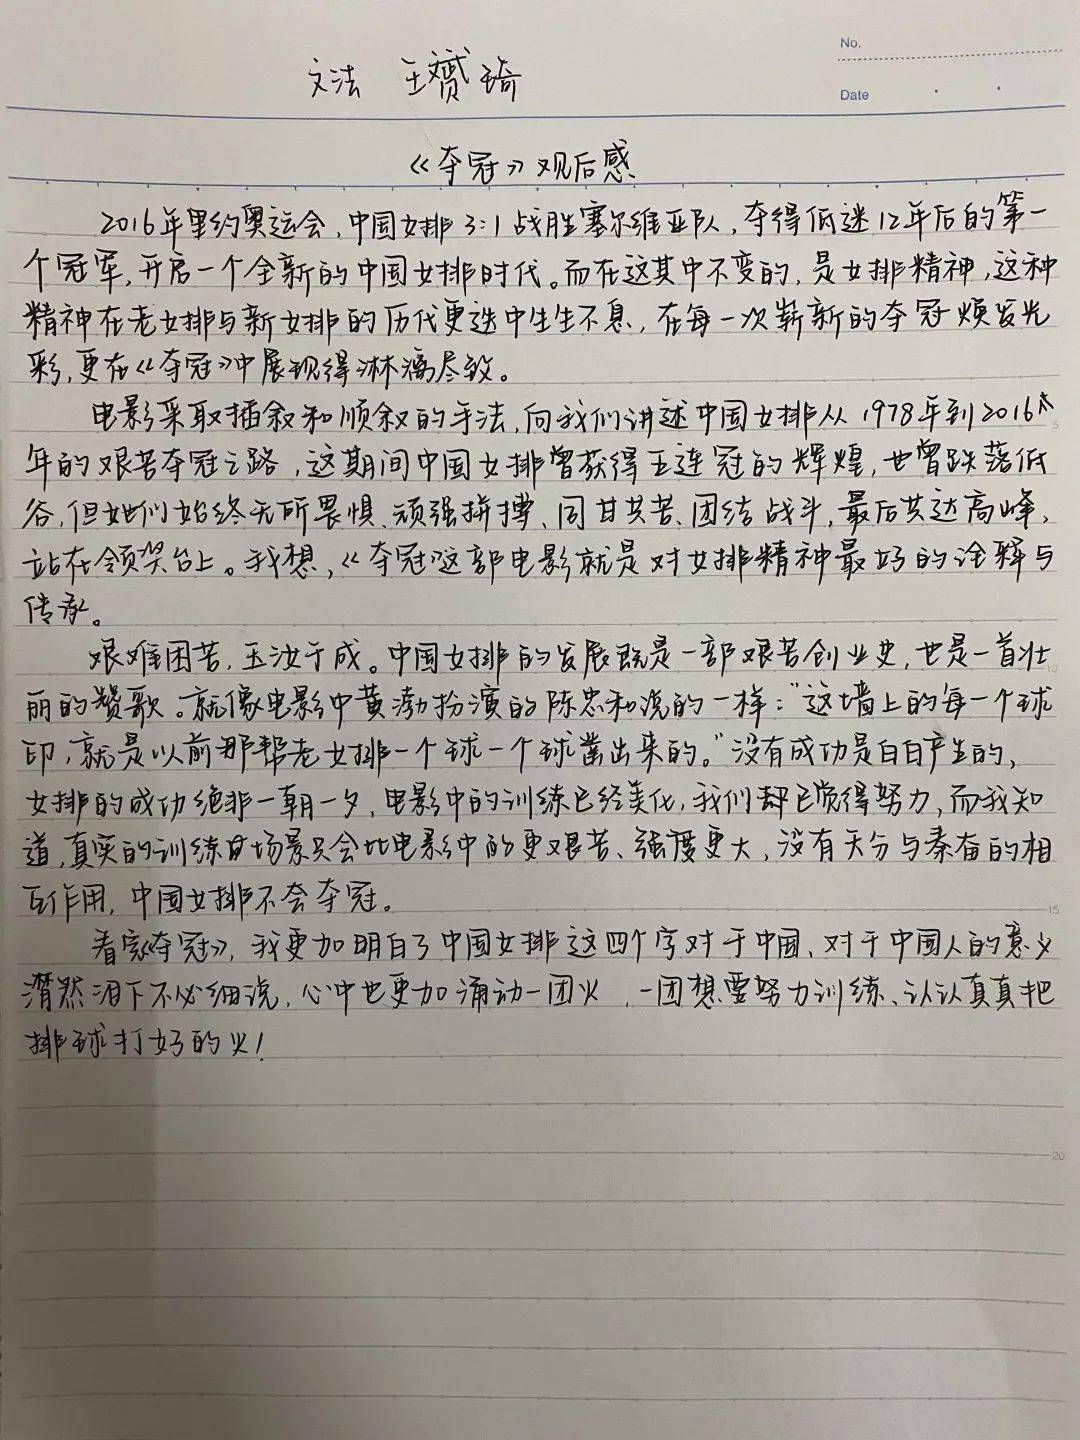 No.
Date
文法 王赟琦
《夺冠》观后感
2016年里约奥运会,中国女排3:1战胜塞尔维亚队,夺得低迷12年后的第一
个冠军,开启一个全新的中国女排时代。而在这其中不变的,是女排精神,这种
精神在老女排与新女排的历代更迭中生生不息,在每一次崭新的夺冠焕发光
彩,更在《夺冠》中展现得淋漓尽致。
电影采取插叙和顺叙的手法,向我们讲述中国女排从1978年到2016
5
年的艰苦夺冠之路,这期间中国女排曾获得五连冠的辉煌,也曾跌落低
谷,但她们始终无所畏惧、顽强拼搏、同甘共苦、团结战斗,最后共达高峰,
站在领奖台上。我想,《夺冠》这部电影就是对女排精神最好的诠释与
传承。
艰难困苦,玉汝于成。中国女排的发展既是一部艰苦创业史,也是一首壮
10
丽的赞歌。就像电影中黄渤扮演的陈忠和说的一样:"这墙上的每一个球
印,就是以前那帮老女排一个球一个球凿出来的。"没有成功是白白产生的,
女排的成功绝非一朝一夕,电影中的训练已经美化,我们都已觉得努力,而我知
道,真实的训练场景只会比电影中的更艰苦、强度更大,没有天分与勤奋的相
互作用,中国女排不会夺冠。
15
看完《夺冠》,我更加明白了中国女排这四个字对于中国、对于中国人的意义
潸然泪下不必细说,心中也更加涌动一团火,一团想要努力训练、认认真真把
排球打好的火!
20